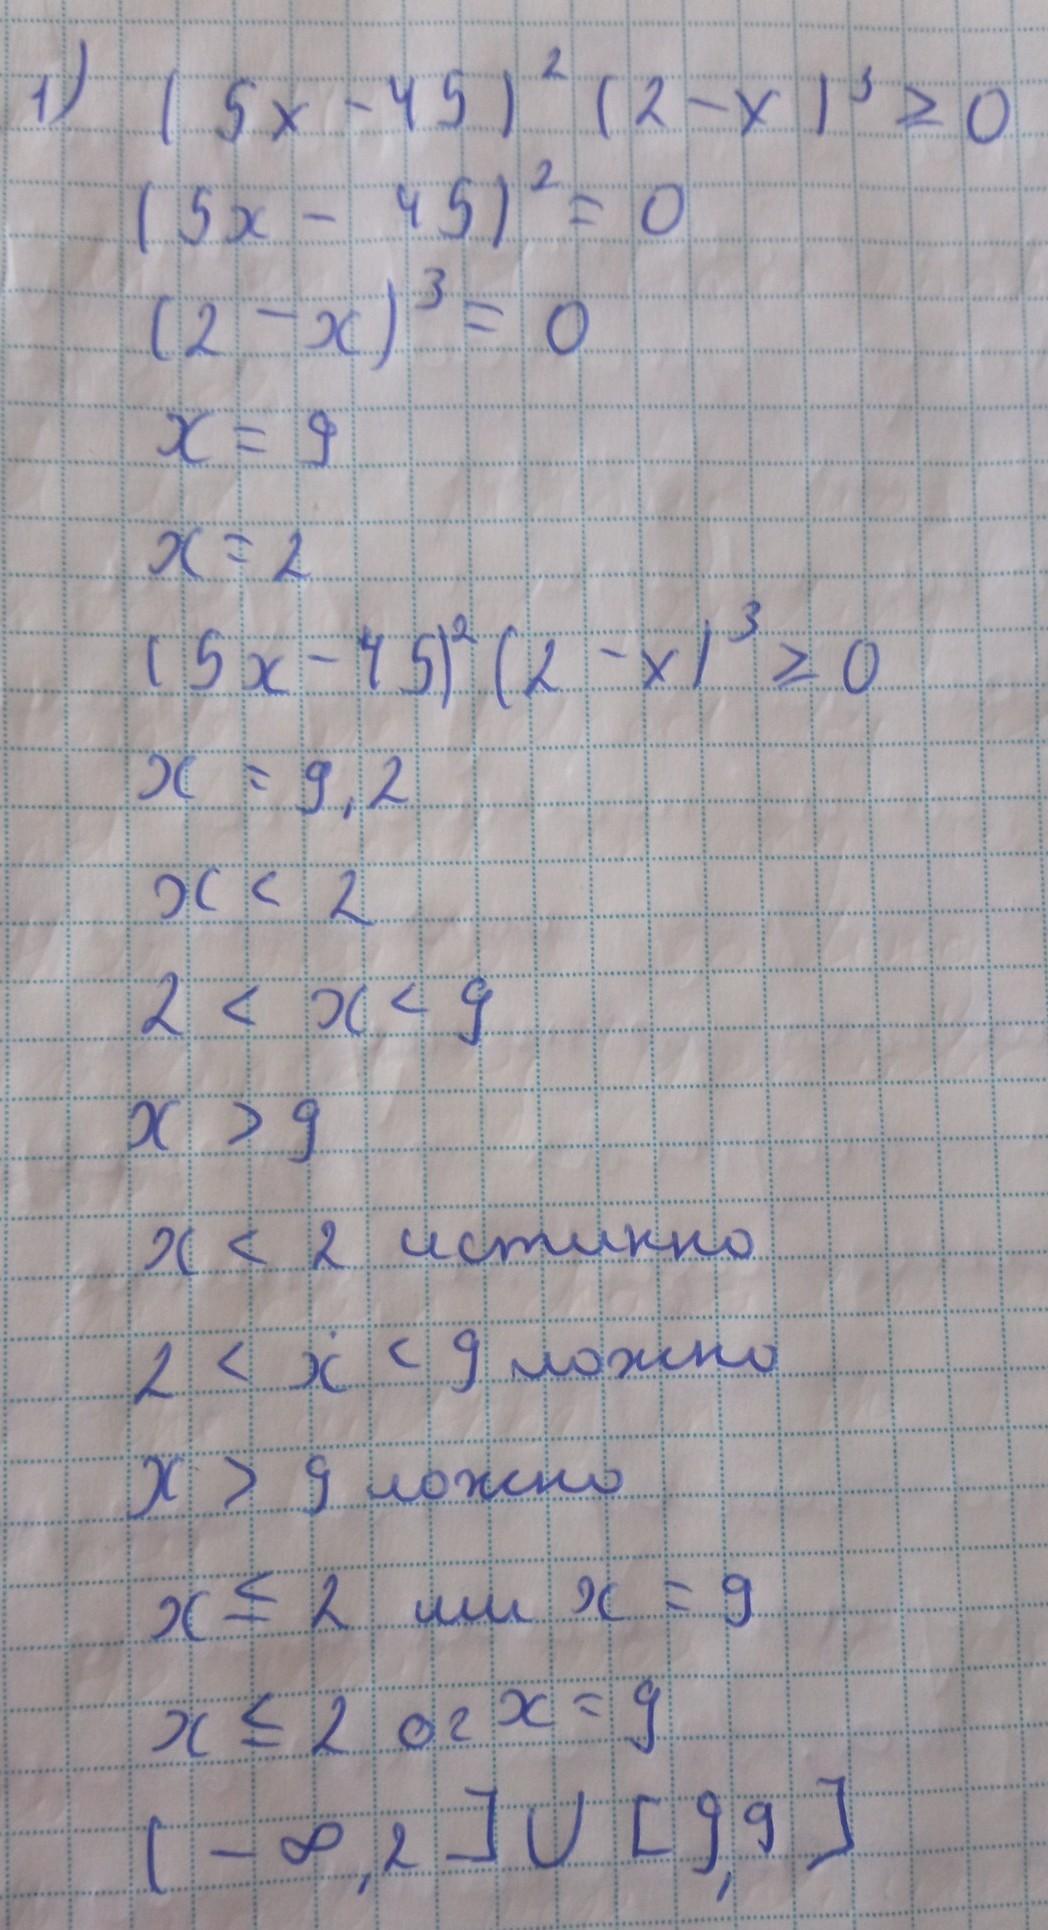 1) (5x-45)² (2-x)³ ≥ 0
(5x - 45)² = 0
(2 - x)³ = 0
x = 9
x = 2
(5x-45)² (2-x)³ ≥ 0
x = 9,2
x < 2
2 < x < 9
x > 9
x < 2 истинно
2 < x < 9 ложно
x > 9 ложно
x ≤ 2 или x = 9
x ≤ 2 or x = 9
(-∞,2] ∪ [9,9]